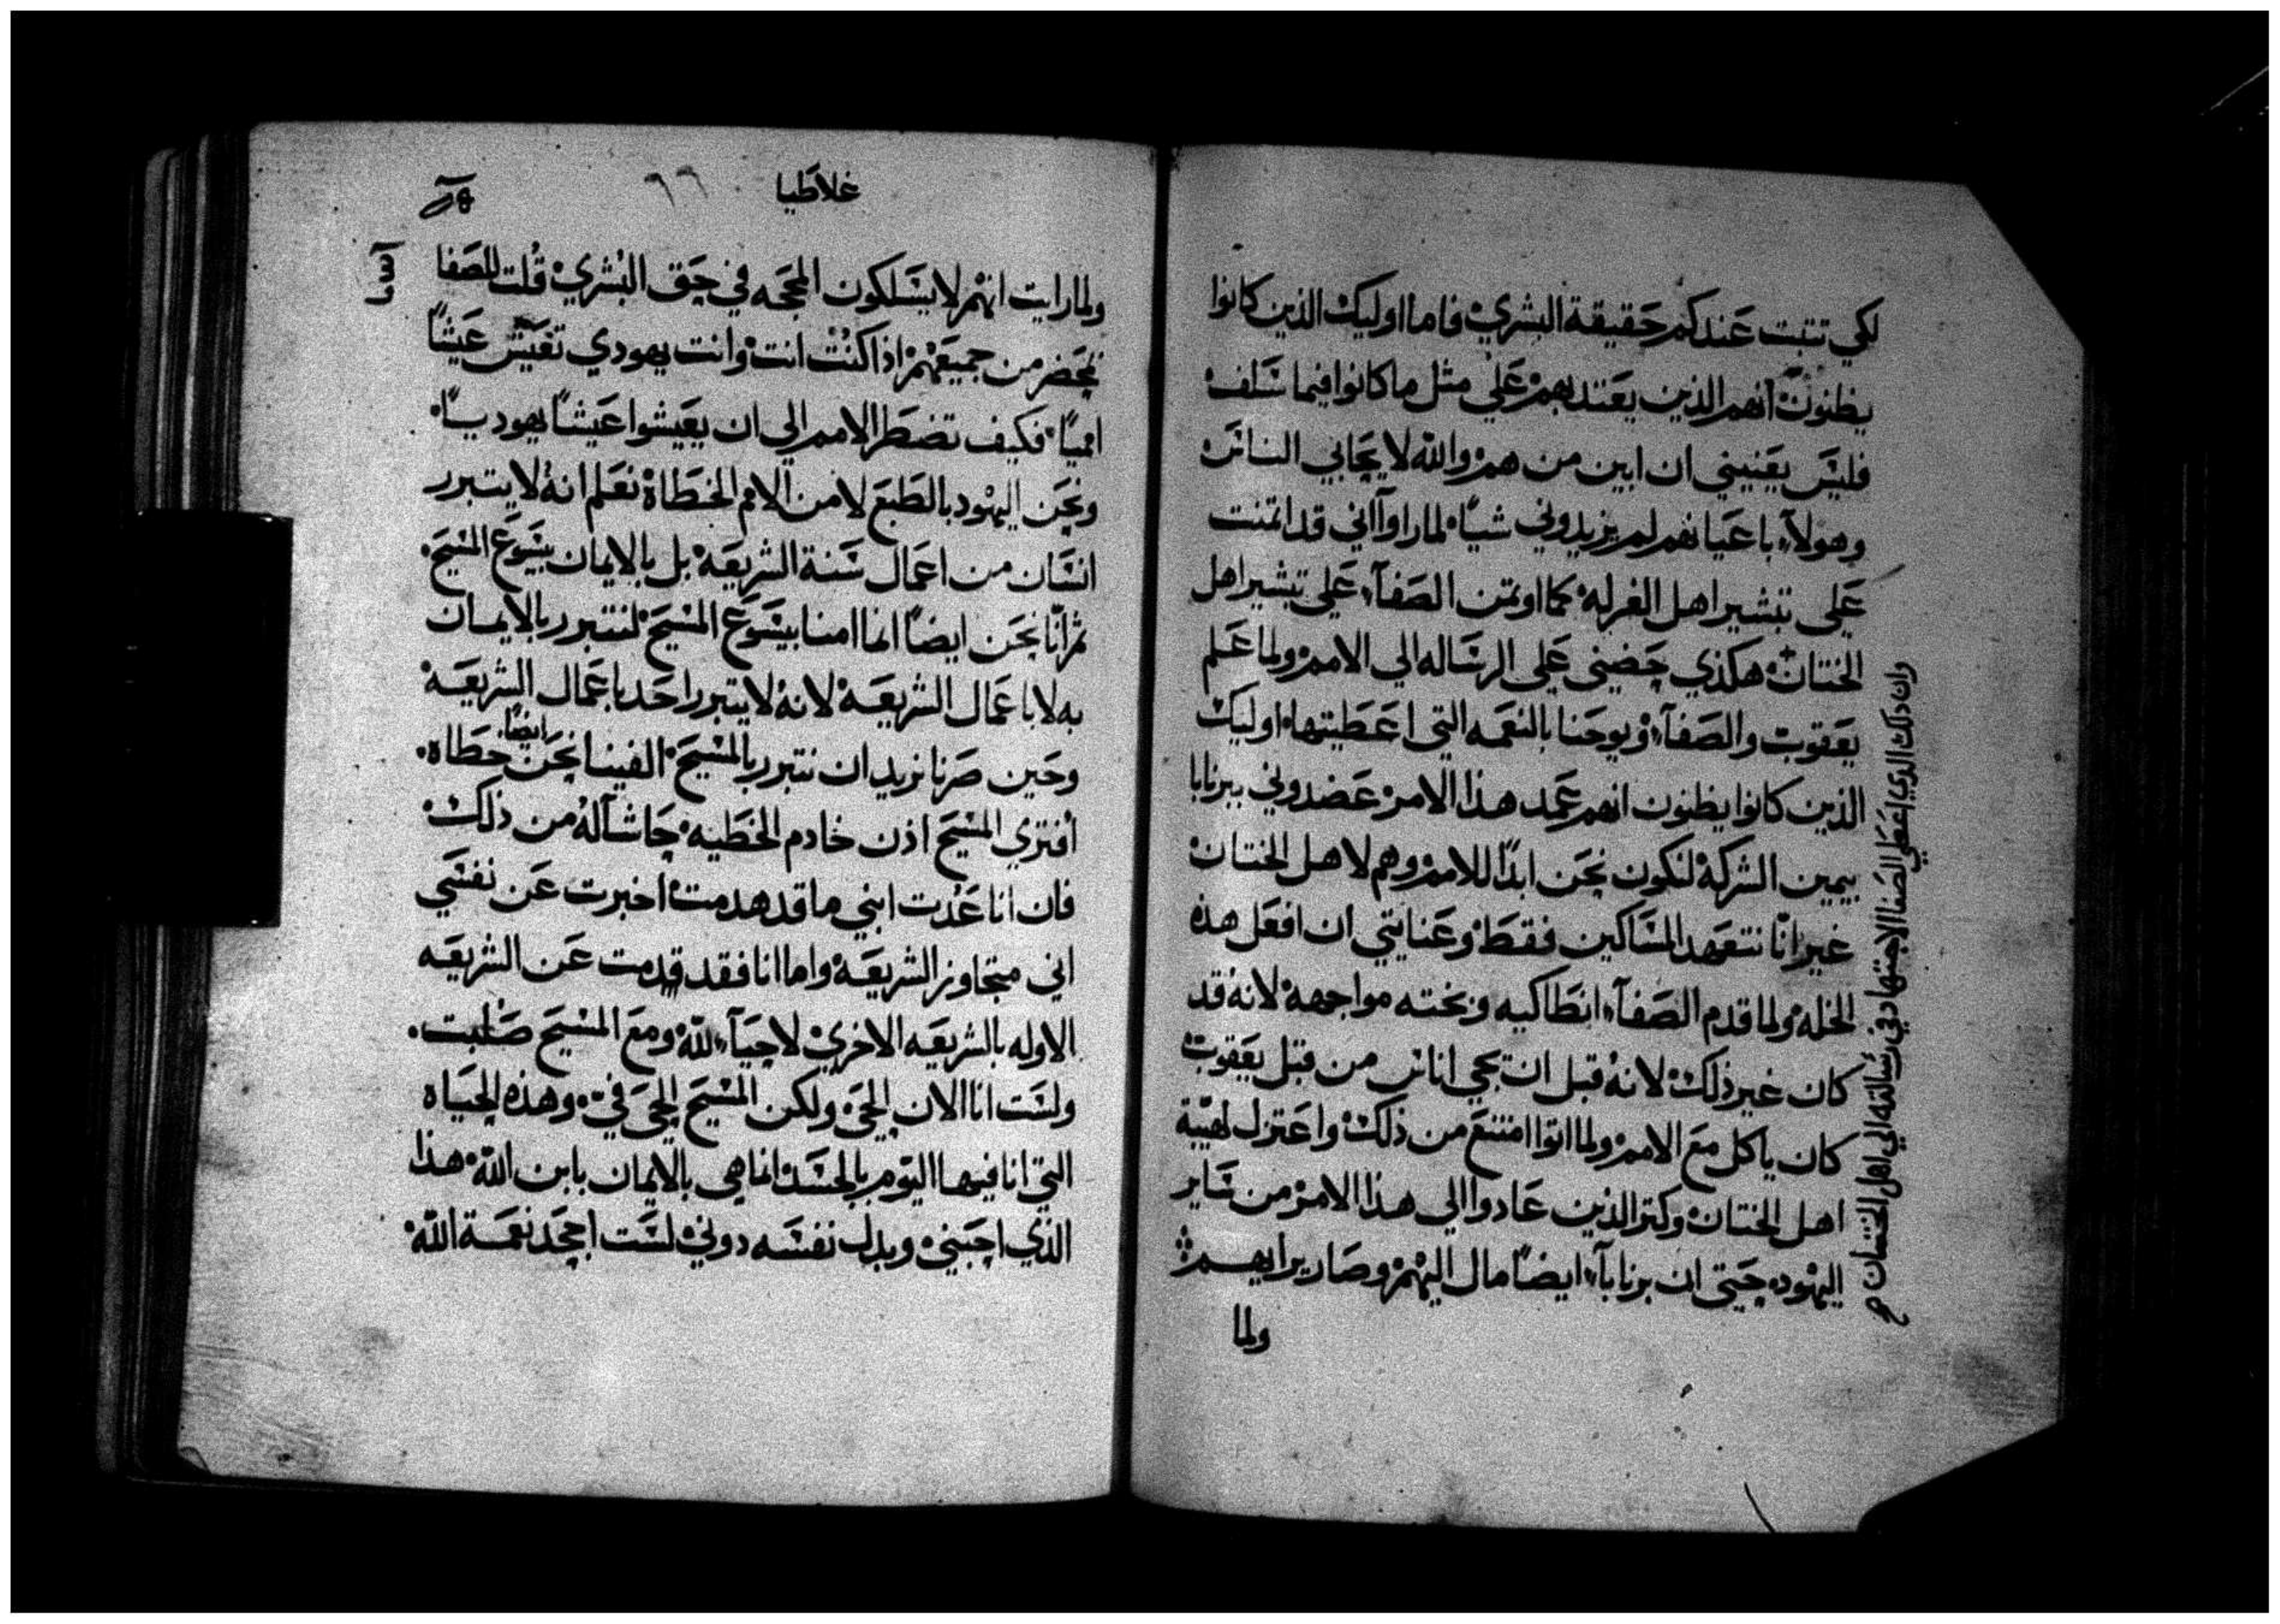 لكي تتبت عندكم حقيقة البشري فاما اوليك الذين كانوا
يظنون انهم الذين يعتد بهم علي مثل ما كانوا فيما سلف
فليس يعنيني ان ابين من هم والله لا يحابي الناس
وهولاء باعيانهم لم يزيدوني شياً لما راوا اني قد اتمنت
علي تبشير اهل الغرله كما اوتمن الصفآء علي تبشير اهل
الختان هكذي حضيني علي الرساله الي الامم ولما علم
يعقوب والصفآء ويوحنا بالنعمه التي اعطيتها اوليك
الذين كانوا يظنون انهم عمد هذا الامر عضدوني ببرنابا
بيمين الشركة لنكون نحن ابدًا للامم وهم لاهل الختان
غير انّا نتعهد المساكين فقط وعنايتي ان افعل هذه
الخله ولما قدم الصفآء انطاكيه وبخته مواجهة لانه قد
كان غير ذلك لانه قبل ان تجي اناس من قبل يعقوب
كان ياكل مع الامم ولما اتوا امتنع من ذلك واعتزل لهيبة
اهل الختان وكتر الذين عادوا الي هذا الامر من ساير
اليهود حتي ان برنابآء ايضاً مال اليهم وصار يرايهم
ولما
وان ذلك الذي اعطي الصفا الاجتهاد في رسالته الي اهل الختان
غلاطيا
٦٦
ولما رايت انهم لا يسلكون المحجه في حق البشري قلت للصفا
بمحضر من جميعهم اذا كنت انت وانت يهودي تعيش عيشاً
امميًا فكيف تضطر الامم الي ان يعيشوا عيشاً يهوديًا
ونحن اليهود بالطبع لا من الامم الخطاة نعلم انه لا يتبرر
انسان من اعمال سنة الشريعه بل بالايمان بيسوع المسيح
ثم انّا نحن ايضاً انما امنا بيسوع المسيح لنتبرر بالايمان
به لا باعمال الشريعه لانه لا يتبرر احد باعمال الشريعه
وحين صرنا نريد ان نتبرر بالمسيح الفينا نحن ايضًا خطاه
أفتري المسيح اذن خادم الخطيه حاشا له من ذلك
فان انا عدت ابني ما قد هدمت اخبرت عن نفسي
اني متجاوز الشريعه واما انا فقد قدمت عن الشريعه
الاوله بالشريعه الاخري لاحيآء لله ومع المسيح صلبت
ولست انا الان الحي ولكن المسيح الحي فيّ وهذه الحياه
التي انا فيها اليوم بالجسد انما هي بالايمان بابن الله هذا
الذي احبني وبدل نفسه دوني لست اجحد نعمة الله